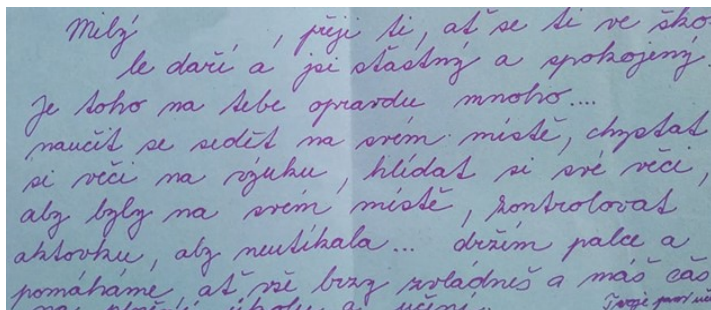 Milý , přeji ti, ať se ti ve ško-
le daří a jsi šťastný a spokojený.
Je toho na tebe opravdu mnoho....
naučit se sedět na svém místě, chystat
si věci na výuku, hlídat si své věci,
aby byly na svém místě, zkontrolovat
aktovku, aby neutíkala... držím palce a
pomáháme ať vše brzy zvládneš a máš čas
na plnění úkolů a učení.
Tvoje paní uč